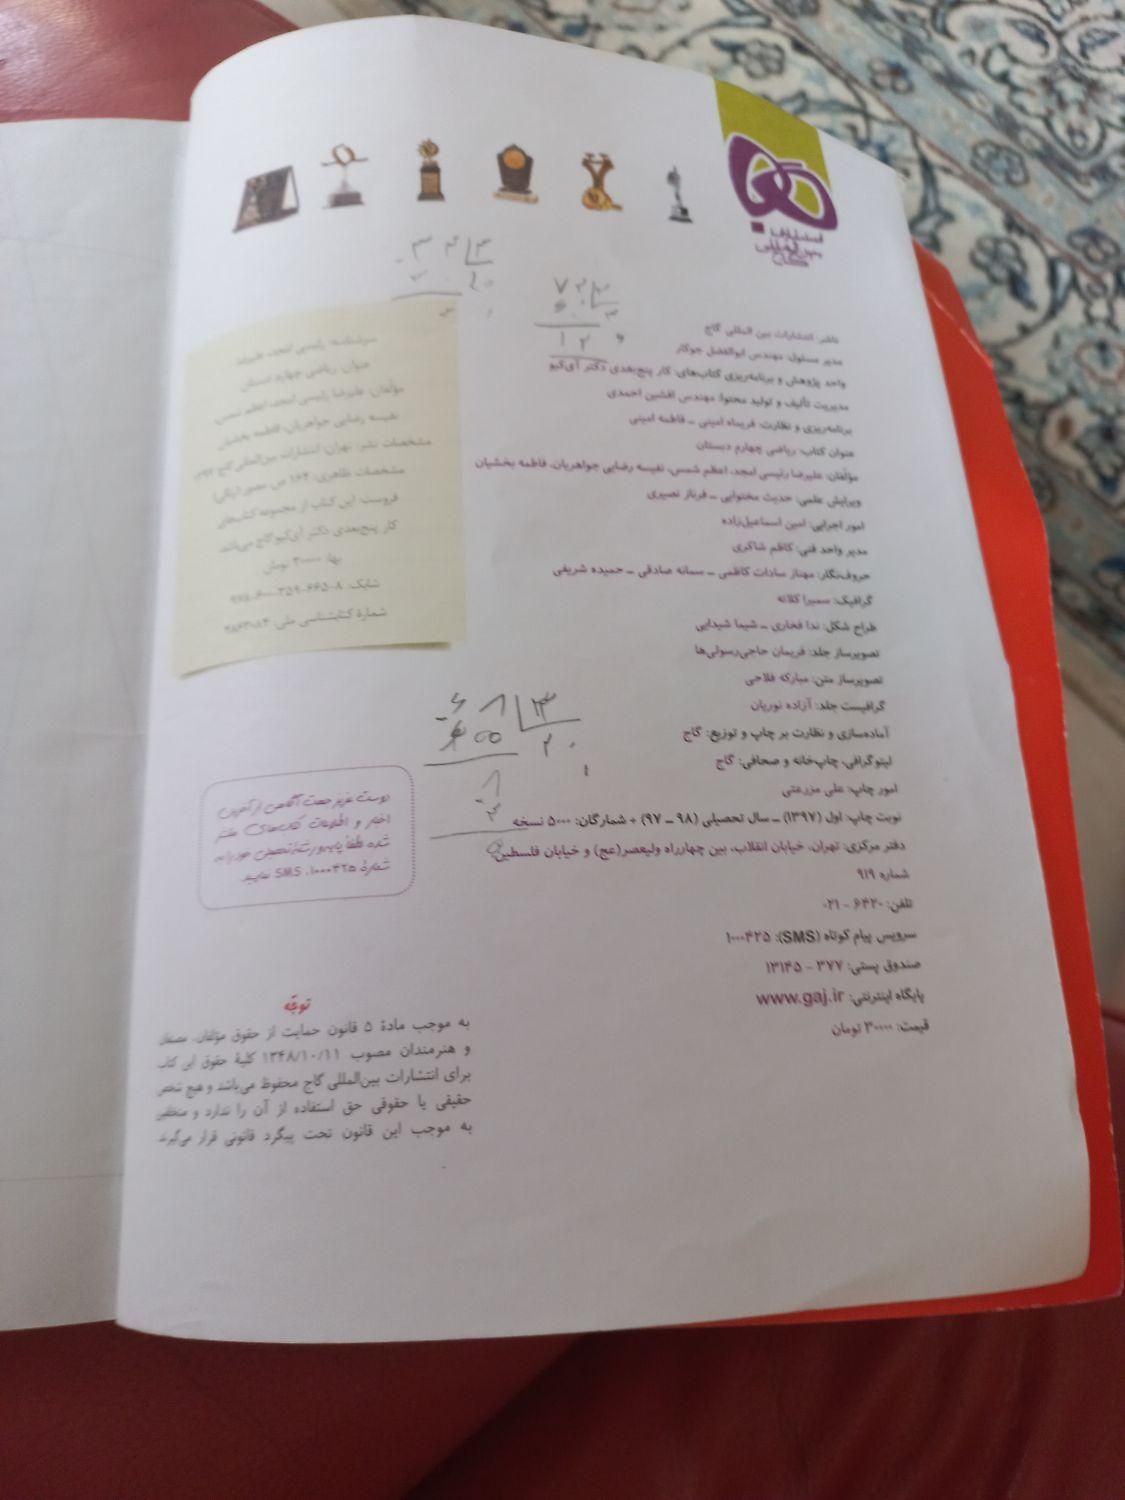 انتشارات
بین المللی
گاج
ناشر: انتشارات بین المللی گاج
مدیر مسئول: مهندس ابوالفضل جوکار
واحد پژوهش و برنامه‌ریزی کتاب‌های: کار پنج‌بعدی دکتر آی‌کیو
مدیریت تألیف و تولید محتوا: مهندس افشین احمدی
برنامه‌ریزی و نظارت: فریماه امینی ـ فاطمه امینی
عنوان کتاب: ریاضی چهارم دبستان
مؤلفان: علیرضا رئیسی امجد، اعظم شمس، نفیسه رضایی جواهریان، فاطمه بخشیان
ویرایش علمی: حدیث محتوایی ـ فرناز نصیری
امور اجرایی: امین اسماعیل‌زاده
مدیر واحد فنی: کاظم شاکری
حروف‌نگار: مهناز سادات کاظمی ـ سمانه صادقی ـ حمیده شریفی
گرافیک: سمیرا کلاته
طراح شکل: ندا فخاری ـ شیما شیدایی
تصویرساز جلد: فریمان حاجی‌رسولی‌ها
تصویرساز متن: مبارکه فلاحی
گرافیست جلد: آزاده نوریان
آماده‌سازی و نظارت بر چاپ و توزیع: گاج
لیتوگرافی، چاپ‌خانه و صحافی: گاج
امور چاپ: علی مزرعتی
نوبت چاپ: اول (۱۳۹۷) ـ سال تحصیلی (۹۸ ـ ۹۷) • شمارگان: ۵۰۰۰ نسخه
دفتر مرکزی: تهران، خیابان انقلاب، بین چهارراه ولیعصر(عج) و خیابان فلسطین
شماره ۹۱۹
تلفن: ۶۴۲۰ - ۰۲۱
سرویس پیام کوتاه (SMS): ۱۰۰۰۴۲۵
صندوق پستی: ۳۷۷ - ۱۳۱۴۵
پایگاه اینترنتی: www.gaj.ir
قیمت: ۳۰۰۰۰ تومان
سرشناسه: رئیسی امجد، علیرضا
عنوان: ریاضی چهارم دبستان
مؤلفان: علیرضا رئیسی امجد، اعظم شمس
نفیسه رضایی جواهریان، فاطمه بخشیان
مشخصات نشر: تهران، انتشارات بین‌المللی گاج
مشخصات ظاهری: ۱۶۴ ص. مصور (رنگی)
فروست: این کتاب از مجموعه کتاب‌های
کار پنج‌بعدی دکتر آی‌کیو گاج می‌باشد.
بها: ۳۰۰۰۰ تومان
شابک: ۸-۶۶۵-۳۵۹-۶۰۰-۹۷۸
شمارۀ کتابشناسی ملی:
دوست عزیز جهت آگاهی از آخرین
اخبار و اطلاعات کتاب‌های منتشر
شده لطفاً پایه و رشتۀ تحصیلی خود را به
شمارۀ ۱۰۰۰۴۲۵، SMS نمایید.
توجّه
به موجب مادۀ ۵ قانون حمایت از حقوق مؤلفان، مصنفان
و هنرمندان مصوب ۱۳۴۸/۱۰/۱۱ کلیۀ حقوق این کتاب
برای انتشارات بین‌المللی گاج محفوظ می‌باشد و هیچ شخص
حقیقی یا حقوقی حق استفاده از آن را ندارد و متخلفین
به موجب این قانون تحت پیگرد قانونی قرار می‌گیرند